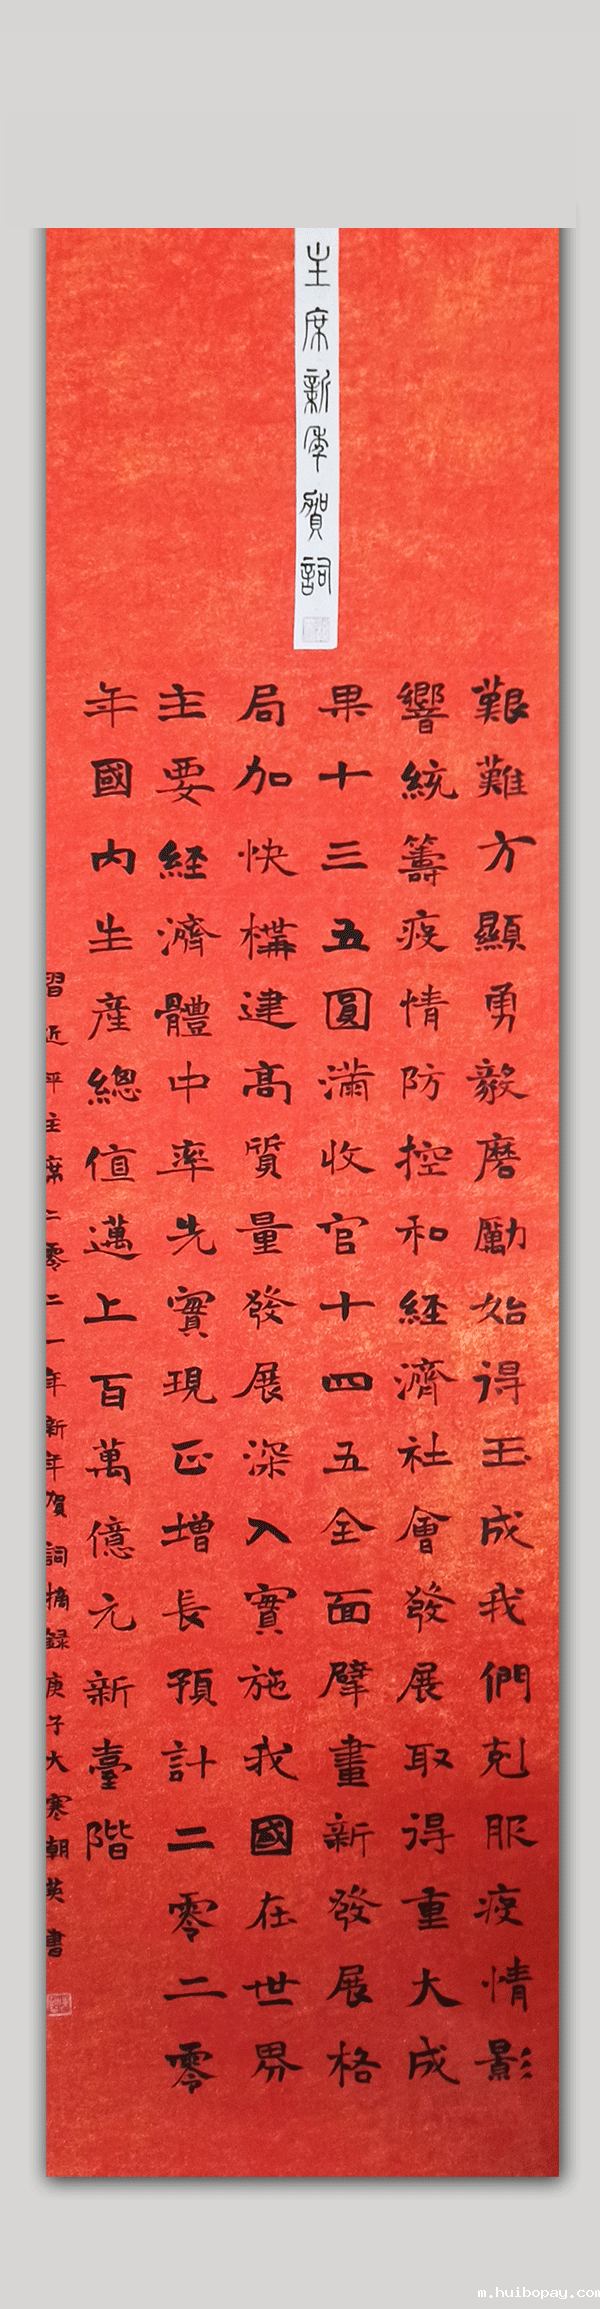 主席新年賀詞
艱難方顯勇毅磨勵始得玉成我們剋服疫情影
響統籌疫情防控和経濟社會發展取得重大成
果十三五圓滿收官十四五全面擘畫新發展格
局加快構建高質量發展深入實施我國在世界
主要経濟體中率先實現正增長預計二零二零
年國内生産總值邁上百萬億元新臺階
習近平主席二零二一年新年賀詞摘録庚子大寒朝英書
m.huibopay.com